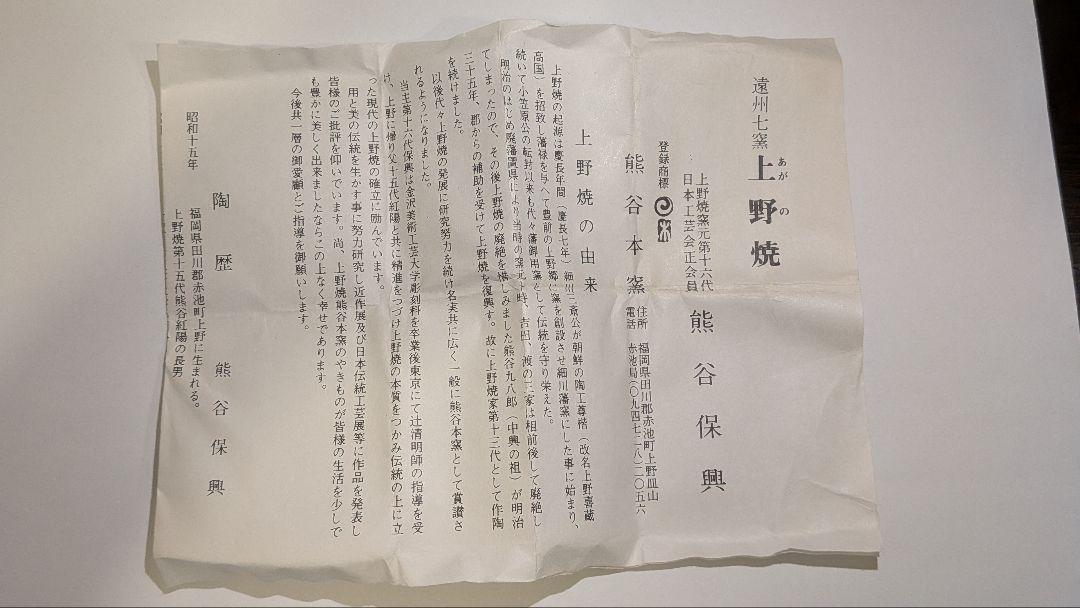 遠州七窯 上野焼
あがの
上野焼窯元第十六代
日本工芸会正会員
熊谷保興
登録商標
熊谷本窯
住所 福岡県田川郡赤池町上野皿山
電話 赤池局(〇九四七二八)二〇五六
上野焼の由来
上野焼の起源は慶長年間(慶長七年)細川三斎公が朝鮮の陶工尊楷(改名上野喜蔵
高国)を招致し藩禄を与へて豊前の上野郷に窯を創設させ細川藩窯にした事に始まり、
続いて小笠原公の転封以来も代々藩御用窯として伝統を守り栄えた。
明治のはじめ廃藩置県により当時の窯元十時、吉田、渡の三家は相前後して廃絶し
てしまったので、その後上野焼の廃絶を惜しみました熊谷九八郎(中興の祖)が明治
三十五年、郡からの補助を受けて上野焼を復興す。故に上野焼家第十三代として作陶
を続けました。
以後代々上野焼の発展に研究努力を続け名実共に広く一般に熊谷本窯として賞讃さ
れるようになりました。
当主第十六代保興は金沢美術工芸大学彫刻科を卒業後東京にて辻清明師の指導を受
け、上野に帰り父十五代紅陽と共に精進をつづけ上野焼の本質をつかみ伝統の上に立
った現代の上野焼の確立に励んでいます。
用と美の伝統を生かす事に努力研究し近作展及び日本伝統工芸展等に作品を発表し
皆様のご批評を仰いでいます。尚、上野焼熊谷本窯のやきものが皆様の生活を少しで
も豊かに美しく出来ましたならこの上なく幸せであります。
今後共一層の御愛顧とご指導を御願いします。
陶歴 熊谷保興
昭和十五年 福岡県田川郡赤池町上野に生まれる。
上野焼第十五代熊谷紅陽の長男